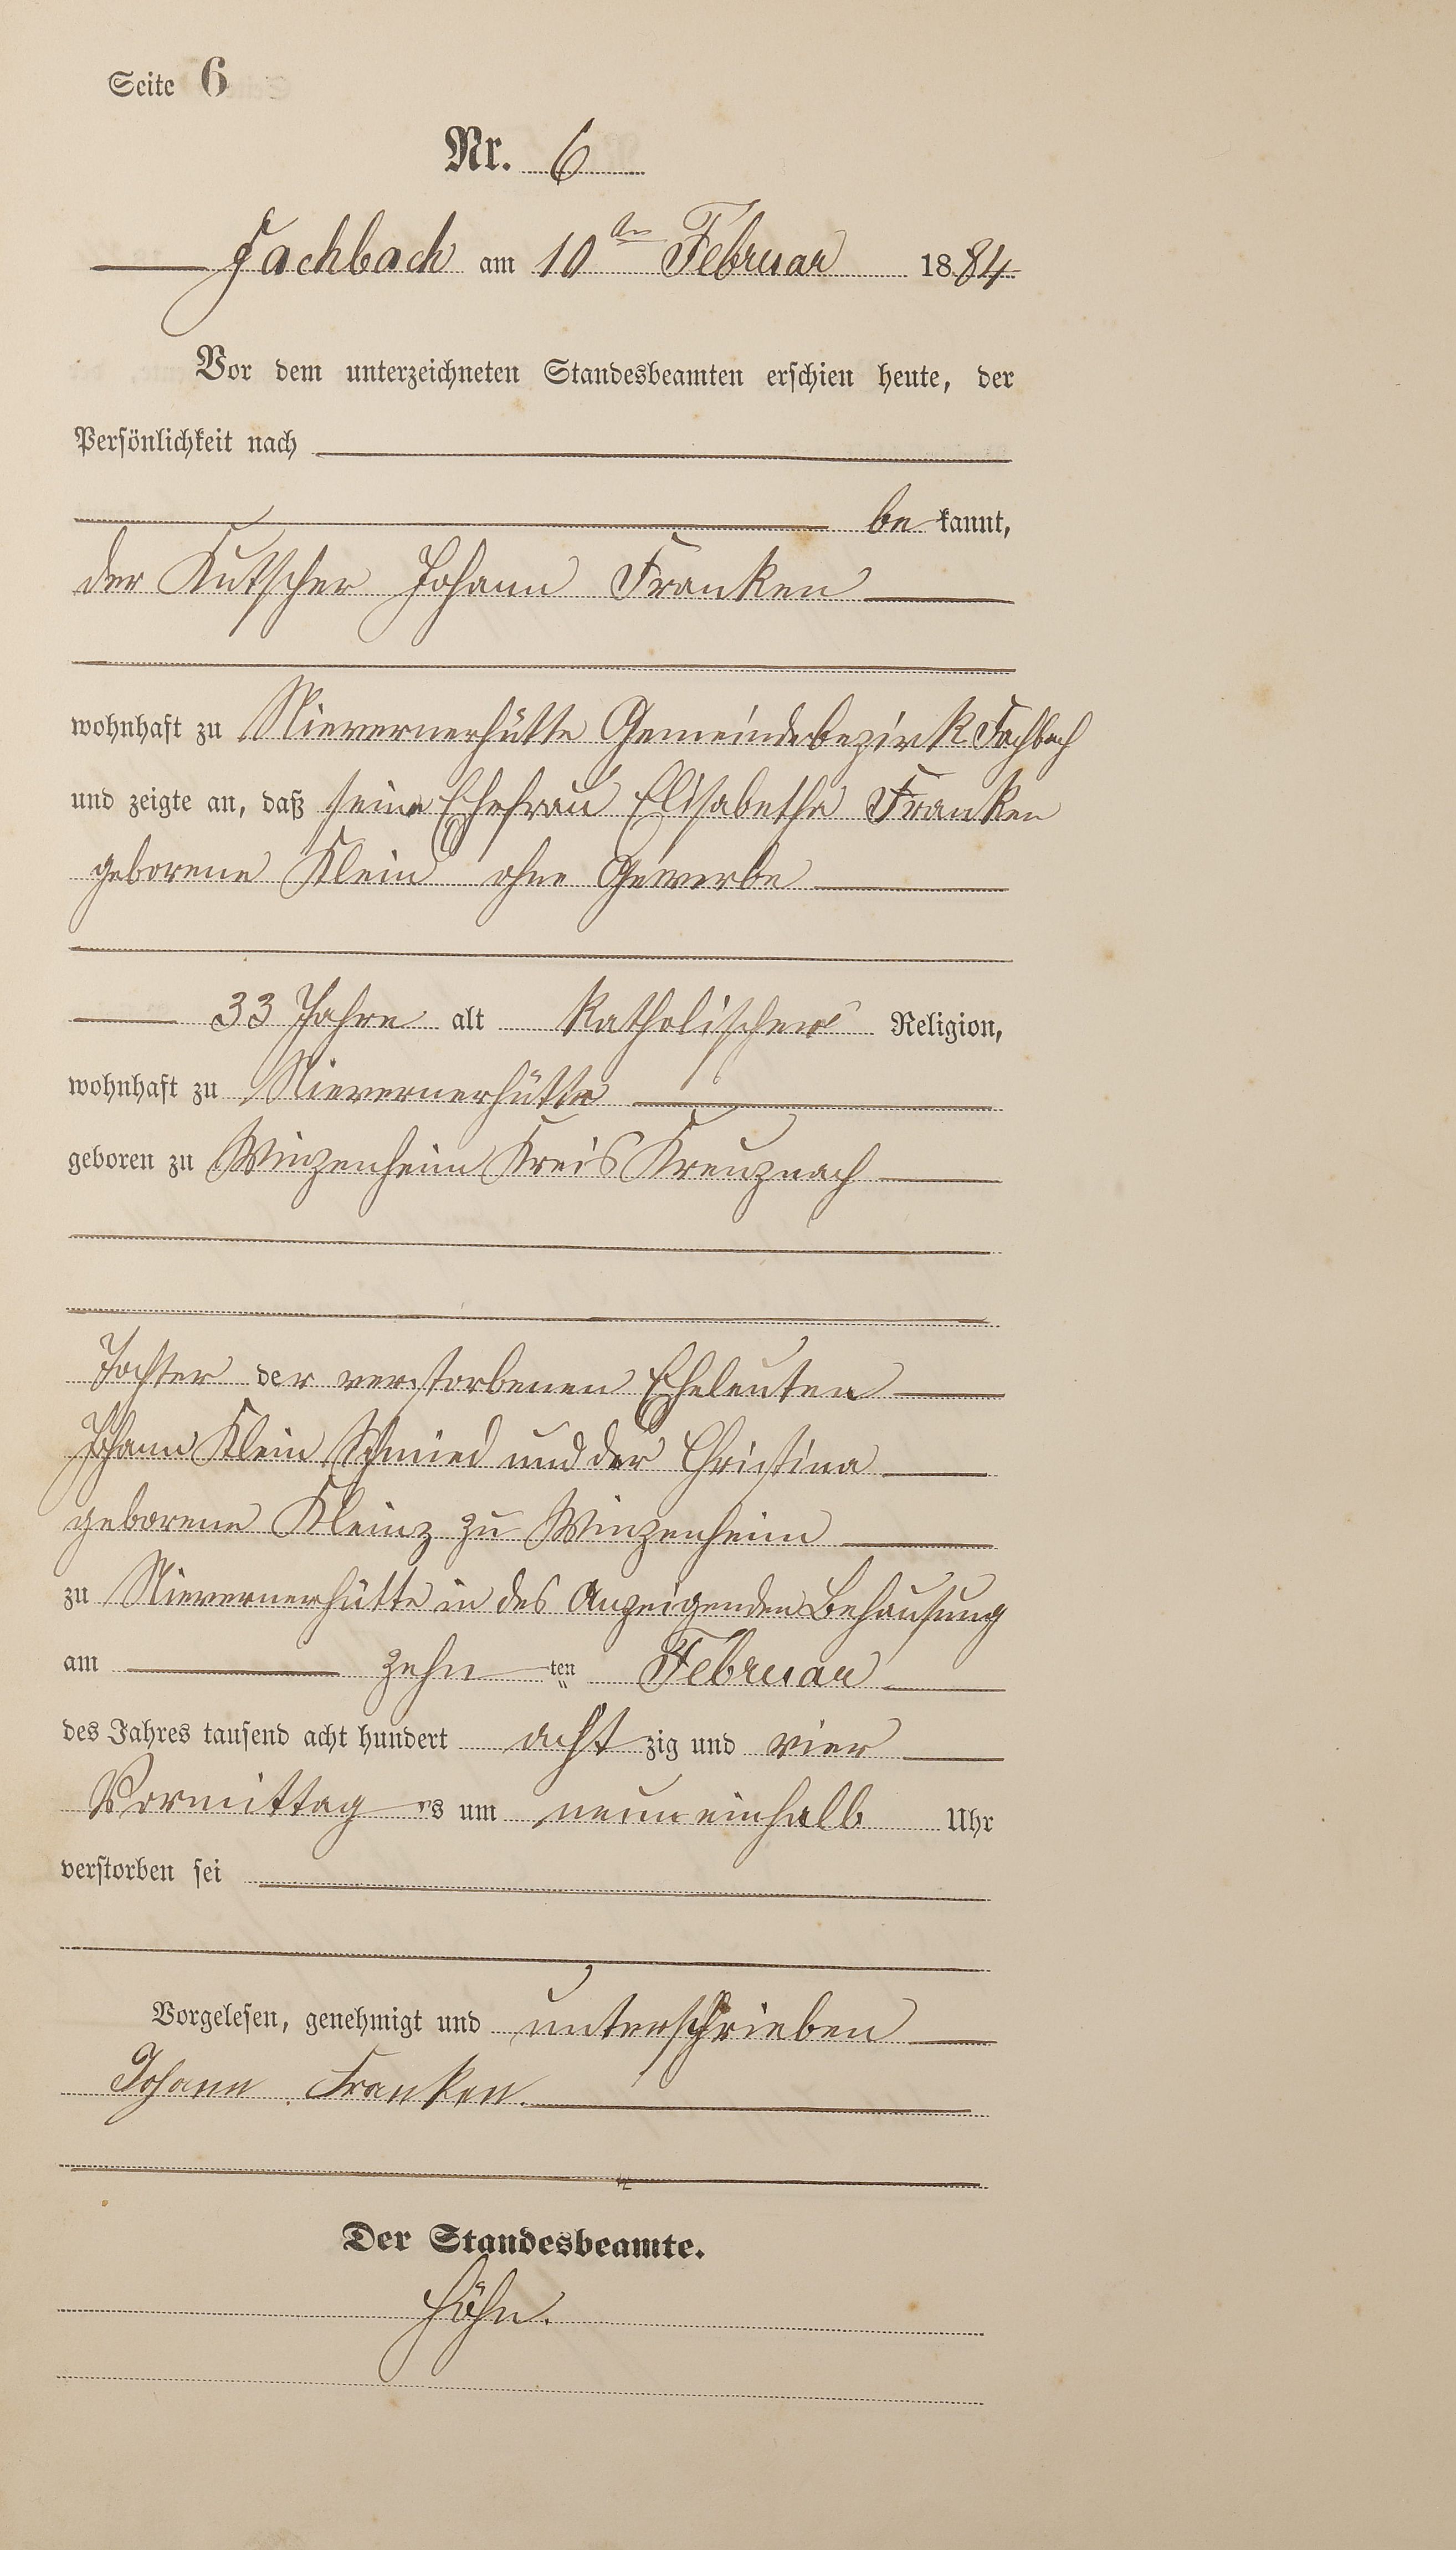 Seite 6
Nr. 6
Fachbach am 10ten Februar 1884
Vor dem unterzeichneten Standesbeamten erschien heute, der
Persönlichkeit nach
be kannt,
der Kutscher Johann Franken
wohnhaft zu Nievernerhütte Gemeindebezirk Fachbach
und zeigte an, daß seine Ehefrau Elisabetha Franken
geborene Klein ohne Gewerbe
33 Jahre alt katholischer Religion,
wohnhaft zu Nievernerhütte
geboren zu Winzenheim Kreis Kreuznach
Tochter der verstorbenen Eheleuten
Johann Klein Schmied und der Christina
geborene Kleinz zu Winzenheim
zu Nievernerhütte in des Anzeigenden Behausung
am zehn ten Februar
des Jahres tausend acht hundert acht zig und vier
Vormittag es um neun einhalb Uhr
verstorben sei
Vorgelesen, genehmigt und unterschrieben
Johann Franken.
Der Standesbeamte.
Höhn.